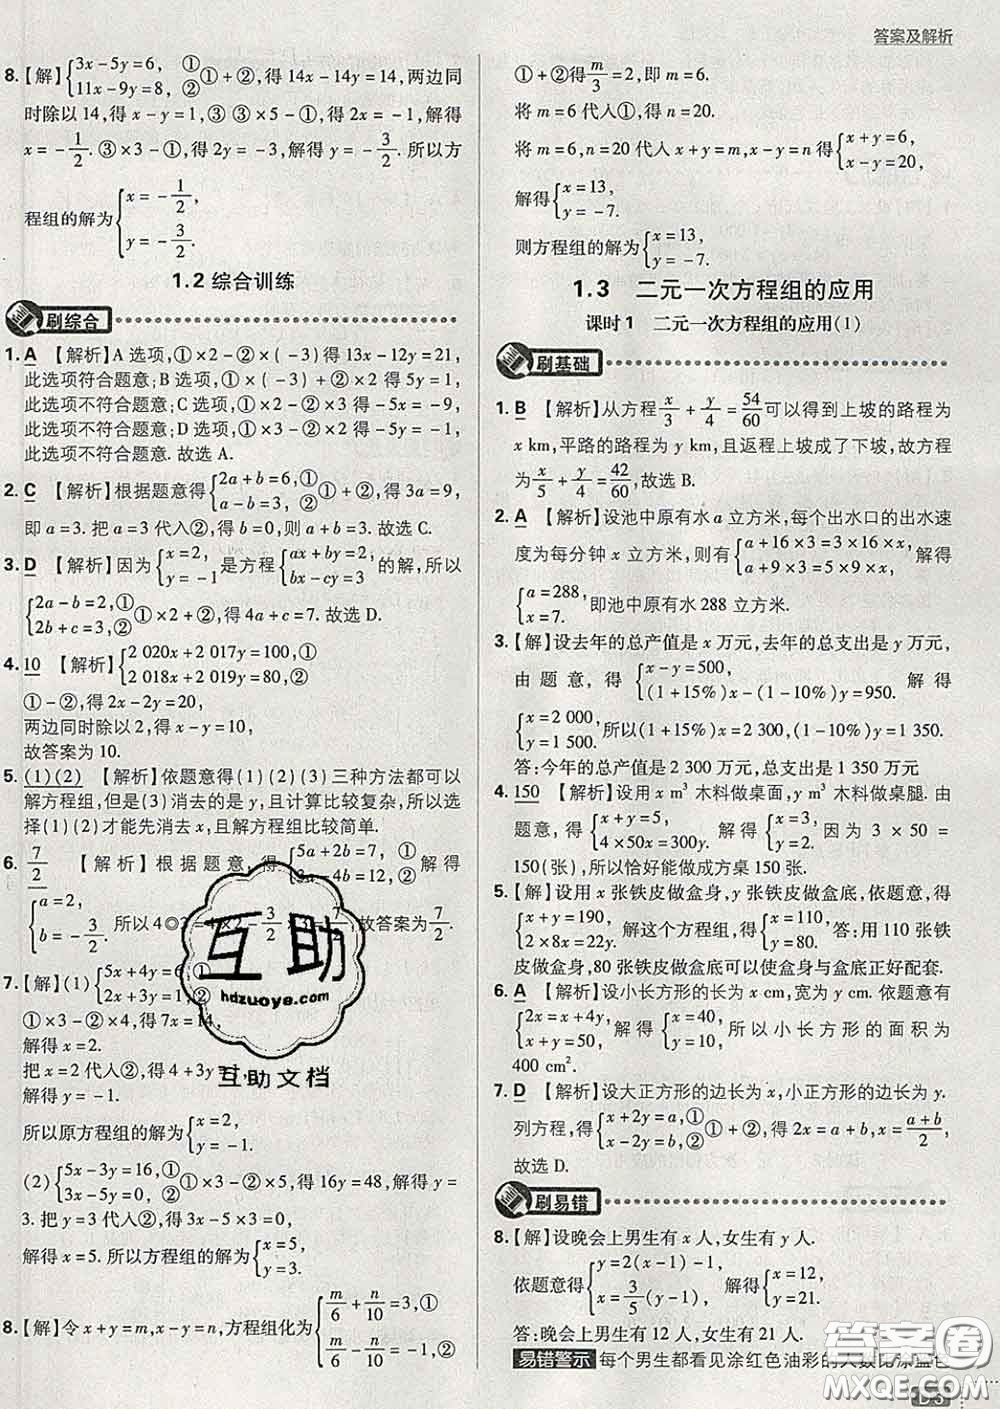 答案及解析
8.【解】{3x-5y=6, ① 11x-9y=8, ② ①+②,得 14x-14y=14,两边同
时除以 14,得 x-y=1,③ ③×5-①,得 2x=-1,解得
x=-1/2. ③×3-①,得 2y=-3,解得 y=-3/2. 所以方
程组的解为{x=-1/2, y=-3/2.
1.2 综合训练
刷综合
1. A 【解析】A 选项,①×2-②×(-3)得 13x-12y=21,
此选项符合题意;B 选项,①×(-3)+②×2 得 5y=-6,
此选项不符合题意;C 选项,①×2-②×3 得-5x=-9,
此选项不符合题意;D 选项,①×3-②×2 得 5y=6,
此选项不符合题意.故选 A.
2. C 【解析】根据题意得{2a+b=6,① a-b=3,② ①+②,得 3a=9,
即 a=3. 把 a=3 代入②,得 b=0,则 a+b=3. 故选 C.
3. D 【解析】因为{x=2, y=-1 是方程{ax+by=3, bx-cy=3 的解,所以
{2a-b=3,① 2b+c=3,② ①×2+②,得 4a+c=7. 故选 D.
4. 10 【解析】{2 020x+2 017y=100,① 2 018x+2 019y=80,②
①-②,得 2x-2y=20,
两边同时除以 2,得 x-y=10,
故答案为 10.
5. (1)(2) 【解析】依题意得(1)(2)(3)三种方法都可以
解方程组,但是(3)消去的是 y,且计算比较复杂,所以选
择(1)(2)才能先消去 x,且解方程组比较简单.
6. 7/2 【解析】根据题意,得{5a+2b=7,① 解得
{a=2, b=-3/2. 所以 故答案为7/2.
7.【解】(1){5x+4y=6,① 2x+3y=1,②
①×3-②×4,得 7x=14,
解得 x=2.
把 x=2 代入②,得 4+3y=
解得 y=-1.
所以原方程组的解为{x=2, y=-1.
(2){5x-3y=16,① 5y-3x=0,② ①×3-②,得 16y=48,解得 y=
3. 把 y=3 代入②,得 3x=15,
解得 x=5. 所以方程组的解为{x=5, y=3.
8.【解】令 x+y=m,x-y=n,方程组化为{m/6+n/10=3,① m/6-n/10=-1.②
①+②得 m/3=2,即 m=6.
将 m=6 代入①,得 n=20.
将 m=6,n=20 代入 x+y=m,x-y=n 得{x+y=6, x-y=20,
解得{x=13, y=-7.
则方程组的解为{x=13, y=-7.
1.3 二元一次方程组的应用
课时 1 二元一次方程组的应用(1)
刷基础
1. B 【解析】从方程x/3+y/4=54/60可以得到上坡的路程为
x km,平路的路程为 y km,且返程上坡成了下坡,故方程
为x/5+y/4=42/60,故选 B.
2. A 【解析】设池中原有水 a 立方米,每个出水口的出水速
度为每分钟 x 立方米,则有{a+16×3=3×16x, a+9×3=5×9x, 解得
{a=288, x=7. 即池中原有水 288 立方米.
3.【解】设去年的总产值是 x 万元,去年的总支出是 y 万元,
由题意,得{x-y=500, (1+15%)x-(1-10%)y=950. 解得
{x=2 000, y=1 500. 所以(1+15%)x=2 300,(1-10%)y=1 350.
答:今年的总产值是 2 300 万元,总支出是 1 350 万元
4. 150 【解析】设用 x m³ 木料做桌面,y m³ 木料做桌腿. 由
题意,得{x+y=5, 4×50x=300y. 解得{x=3, y=2. 因为 3×50=
150(张),所以恰好能做成方桌 150 张.
5.【解】设用 x 张铁皮做盒身,y 张铁皮做盒底,依题意,得
{x+y=190, 2×8x=22y. 解这个方程组,得{x=110, y=80. 答:用 110 张铁
皮做盒身,80 张铁皮做盒底可以使盒身与盒底正好配套.
6. A 【解析】设小长方形的长为 x cm,宽为 y cm. 依题意有
解得 所以小长方形的面积为
400 cm².
7. D 【解析】设大正方形的边长为 x,小正方形的边长为 y,
列方程,得{x+2y=a,① x-2y=b,② ①+②,得 2x=a+b,x=(a+b)/2,
故选 D.
刷易错
8.【解】设晚会上男生有 x 人,女生有 y 人.
依题意得{y=2(x-1)-1, x=3/5(y-1), 解得{x=12, y=21.
答:晚会上男生有 12 人,女生有 21 人.
易错警示 每个男生都看见涂红色油彩的人数比涂蓝色
D3
互助
hdzuoye.com
互助文档
答案圈
MXQE.COM